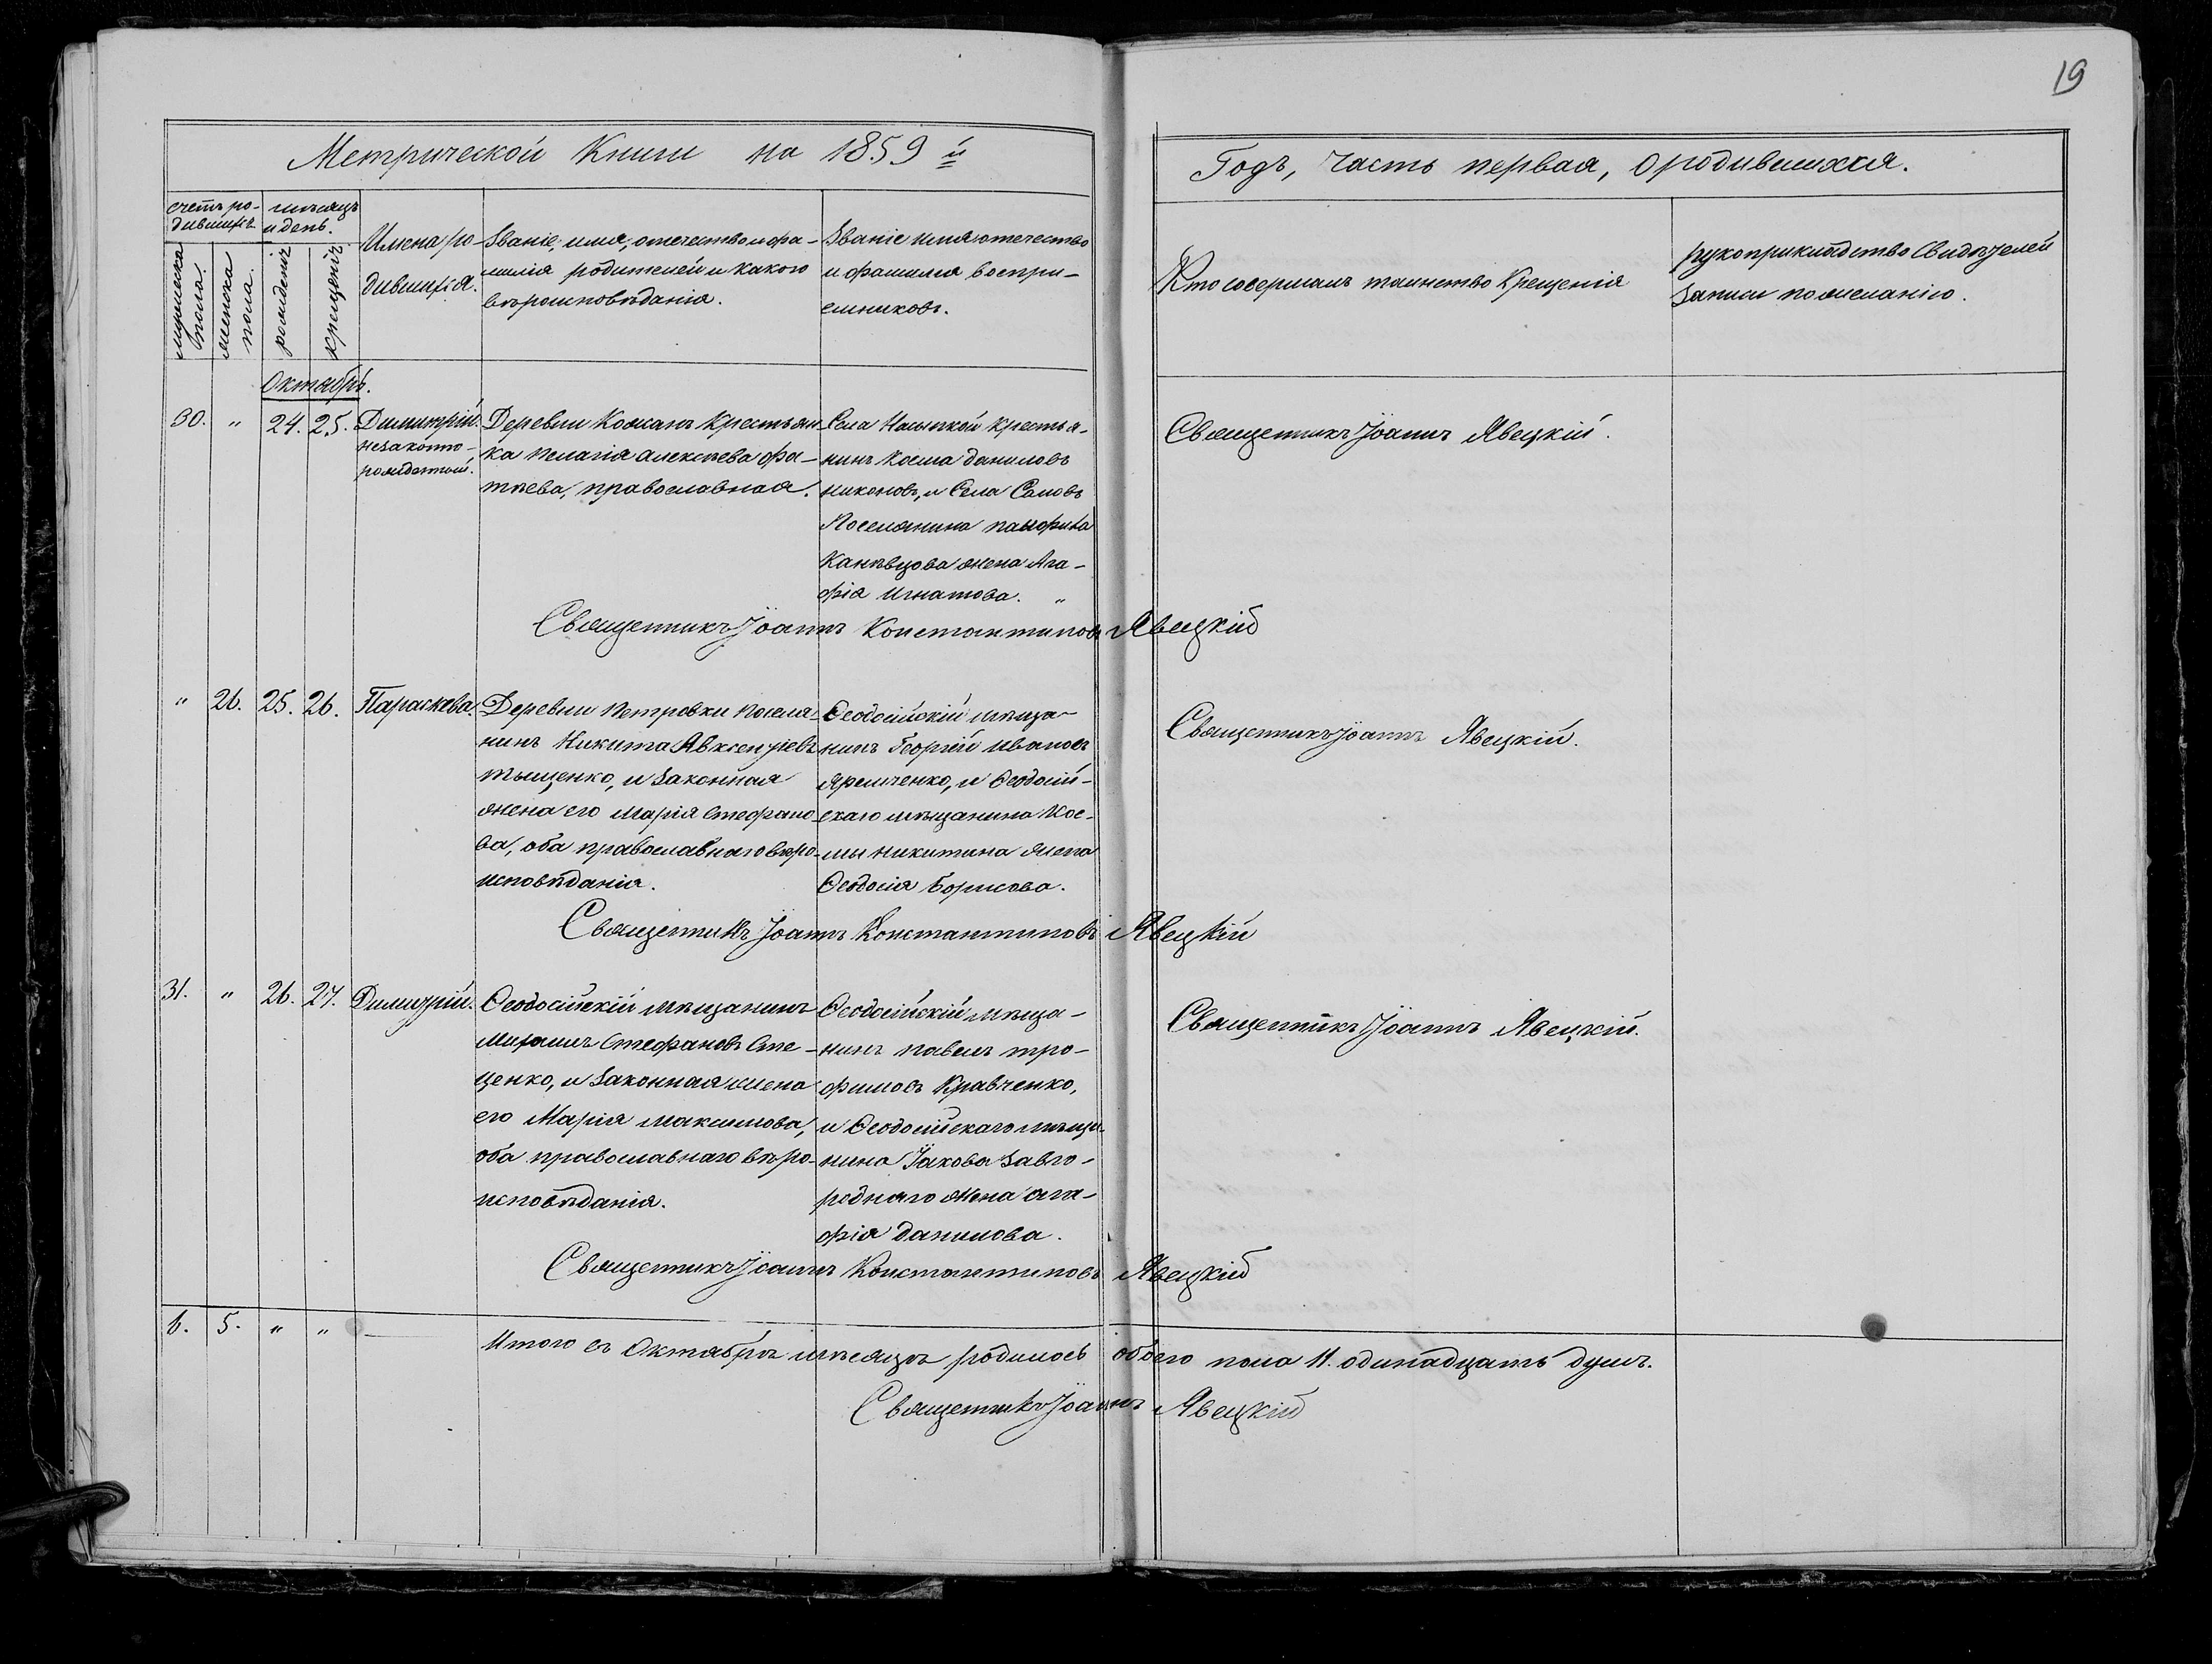 19
Метрической Книги на 1859 й
Годъ, часть первая, о родившихся.
счетъ ро-
дившихъ
мѣсяцъ
и день.
мужеска
пола.
женска
пола.
рожденія
крещенія
Имена ро-
дившихся.
Званіе, имя, отечество и фа-
милія родителей и какого
вѣроисповѣданія.
Званіе имя отечество
и фамилия воспри-
емниковъ.
Кто совершалъ таинство Крещенія
рукоприкладство Свидѣтелей
записи по желанію.
Октябрь.
30. " 24. 25. Димитрій.
незаконно-
рожденный.
Деревни Кожанъ Крестьян-
ка Пелагія Алексѣева Фа-
тѣева, православная.
Села Насыпкой Крестья-
нинъ Косма Даниловъ
Никоновъ, и Села Саловъ
Поселянина
Канѣвцова жена Ага-
фія Игнатова. "
Священникъ Іоаннъ Явецкій.
Священникъ Іоаннъ Константиновъ Явецкій
" 26. 25. 26. Параскева.
Деревни Петровки Поселя-
нинъ Никита Авксентіевъ
Тыщенко, и законная
жена его Марія Стефано-
ва, оба православнаго вѣро-
исповѣданія.
Ѳеодосійскій мѣща-
нинъ Георгій Ивановъ
Яремченко, и Ѳеодосій-
скаго мѣщанина Кос-
мы Никитина жена
Ѳеодосія Борисова.
Священникъ Іоаннъ Явецкій.
Священникъ Іоаннъ Константиновъ Явецкій
31. " 26. 27. Димитрій.
Ѳеодосійскій мѣщанинъ
Михаилъ Стефановъ Сте-
ценко, и законная жена
его Марія Максимова,
оба православнаго вѣро-
исповѣданія.
Ѳеодосійскій мѣща-
нинъ Павелъ Тро-
фимовъ Кравченко,
и Ѳеодосійскаго мѣща-
нина Іакова Завго-
роднаго жена Ага-
фія Данилова.
Священникъ Іоаннъ Явецкій.
Священникъ Іоаннъ Константиновъ Явецкій
6. 5. " " —
Итого въ Октябрѣ мѣсяцѣ родилось обоего пола 11. одинадцать душъ.
Священникъ Іоаннъ Явецкій